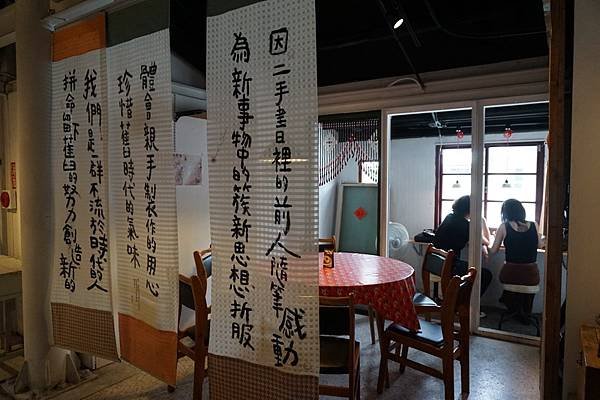 因二手書裡的前人隨筆感動
為新事物中的簇新思想折服
體會親手製作的用心
珍惜舊時代的氣味
我們是一群不流於時的人
拼命留下舊的努力創造新的